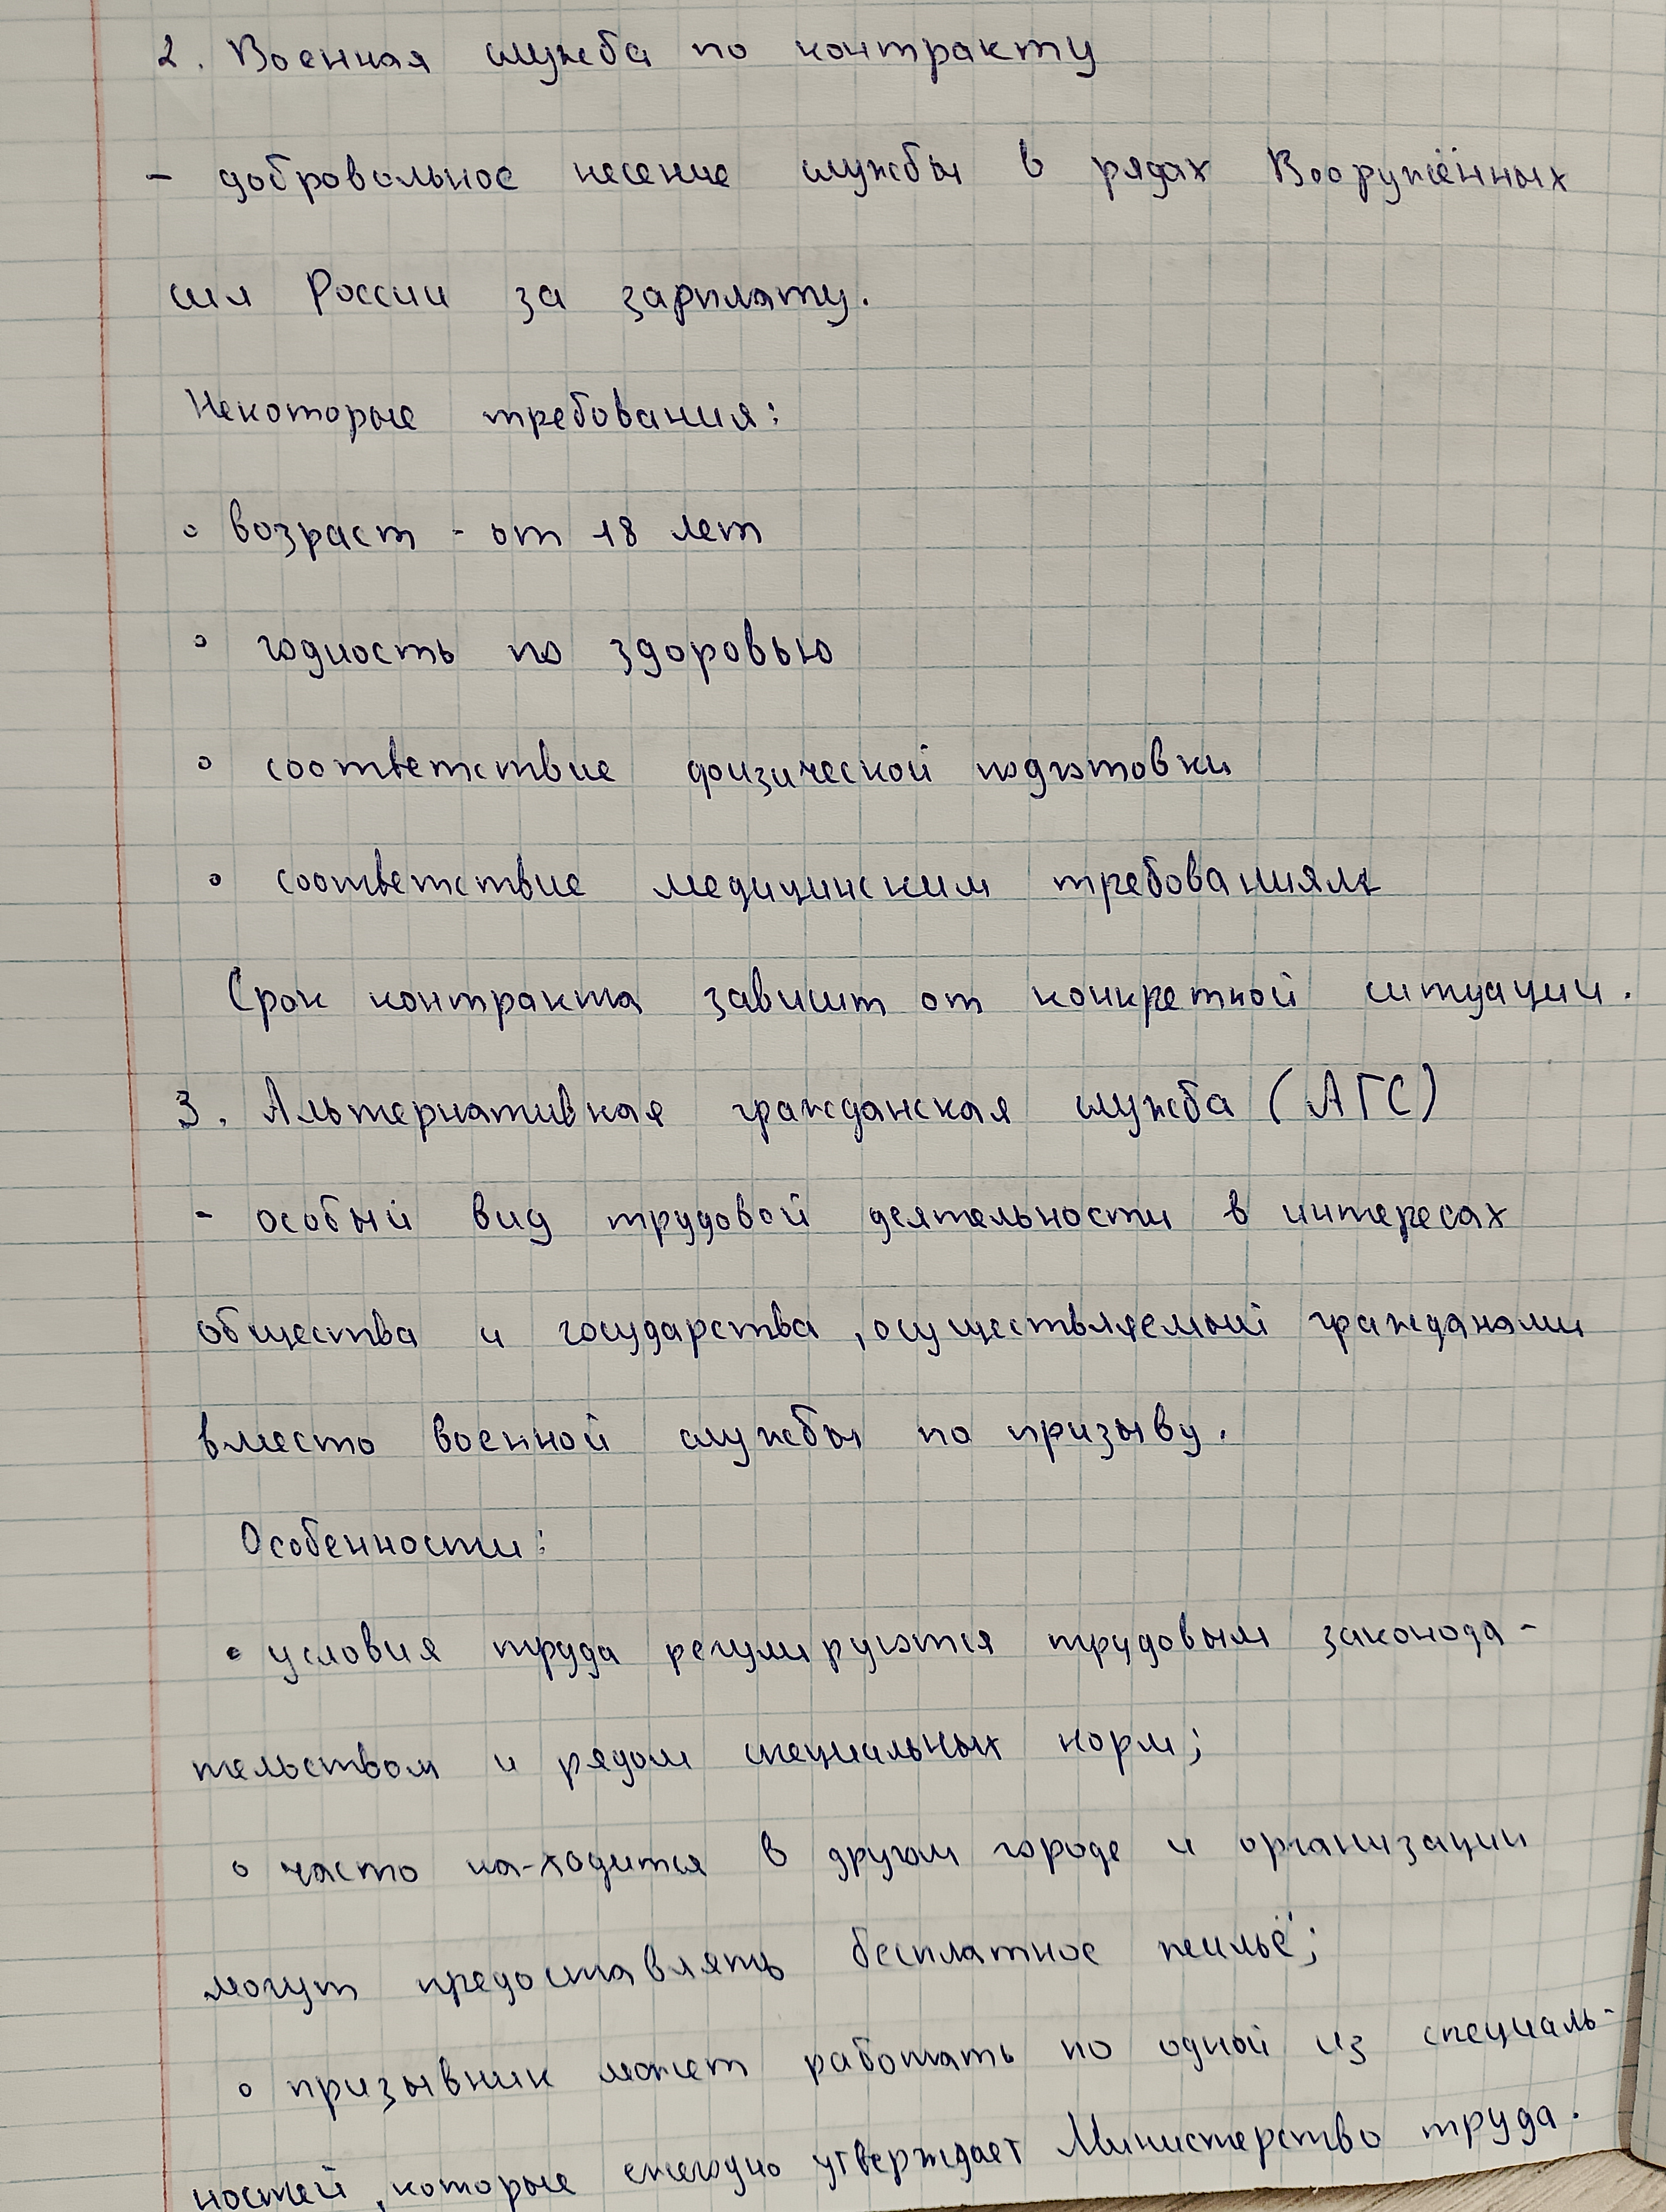 2. Военная служба по контракту
- добровольное несение службы в рядах Вооружённых
сил России за зарплату.
Некоторые требования:
◦ возраст - от 18 лет
◦ годность по здоровью
◦ соответствие физической подготовки
◦ соответствие медицинским требованиям
Срок контракта зависит от конкретной ситуации.
3. Альтернативная гражданская служба (АГС)
- особый вид трудовой деятельности в интересах
общества и государства, осуществляемый гражданами
вместо военной службы по призыву.
Особенности:
• условия труда регулируются трудовым законода-
тельством и рядом специальных норм;
◦ часто на-ходится в другом городе и организации
могут предоставлять бесплатное жильё;
◦ призывник может работать по одной из специаль-
ностей, которые ежегодно утверждает Министерство труда.